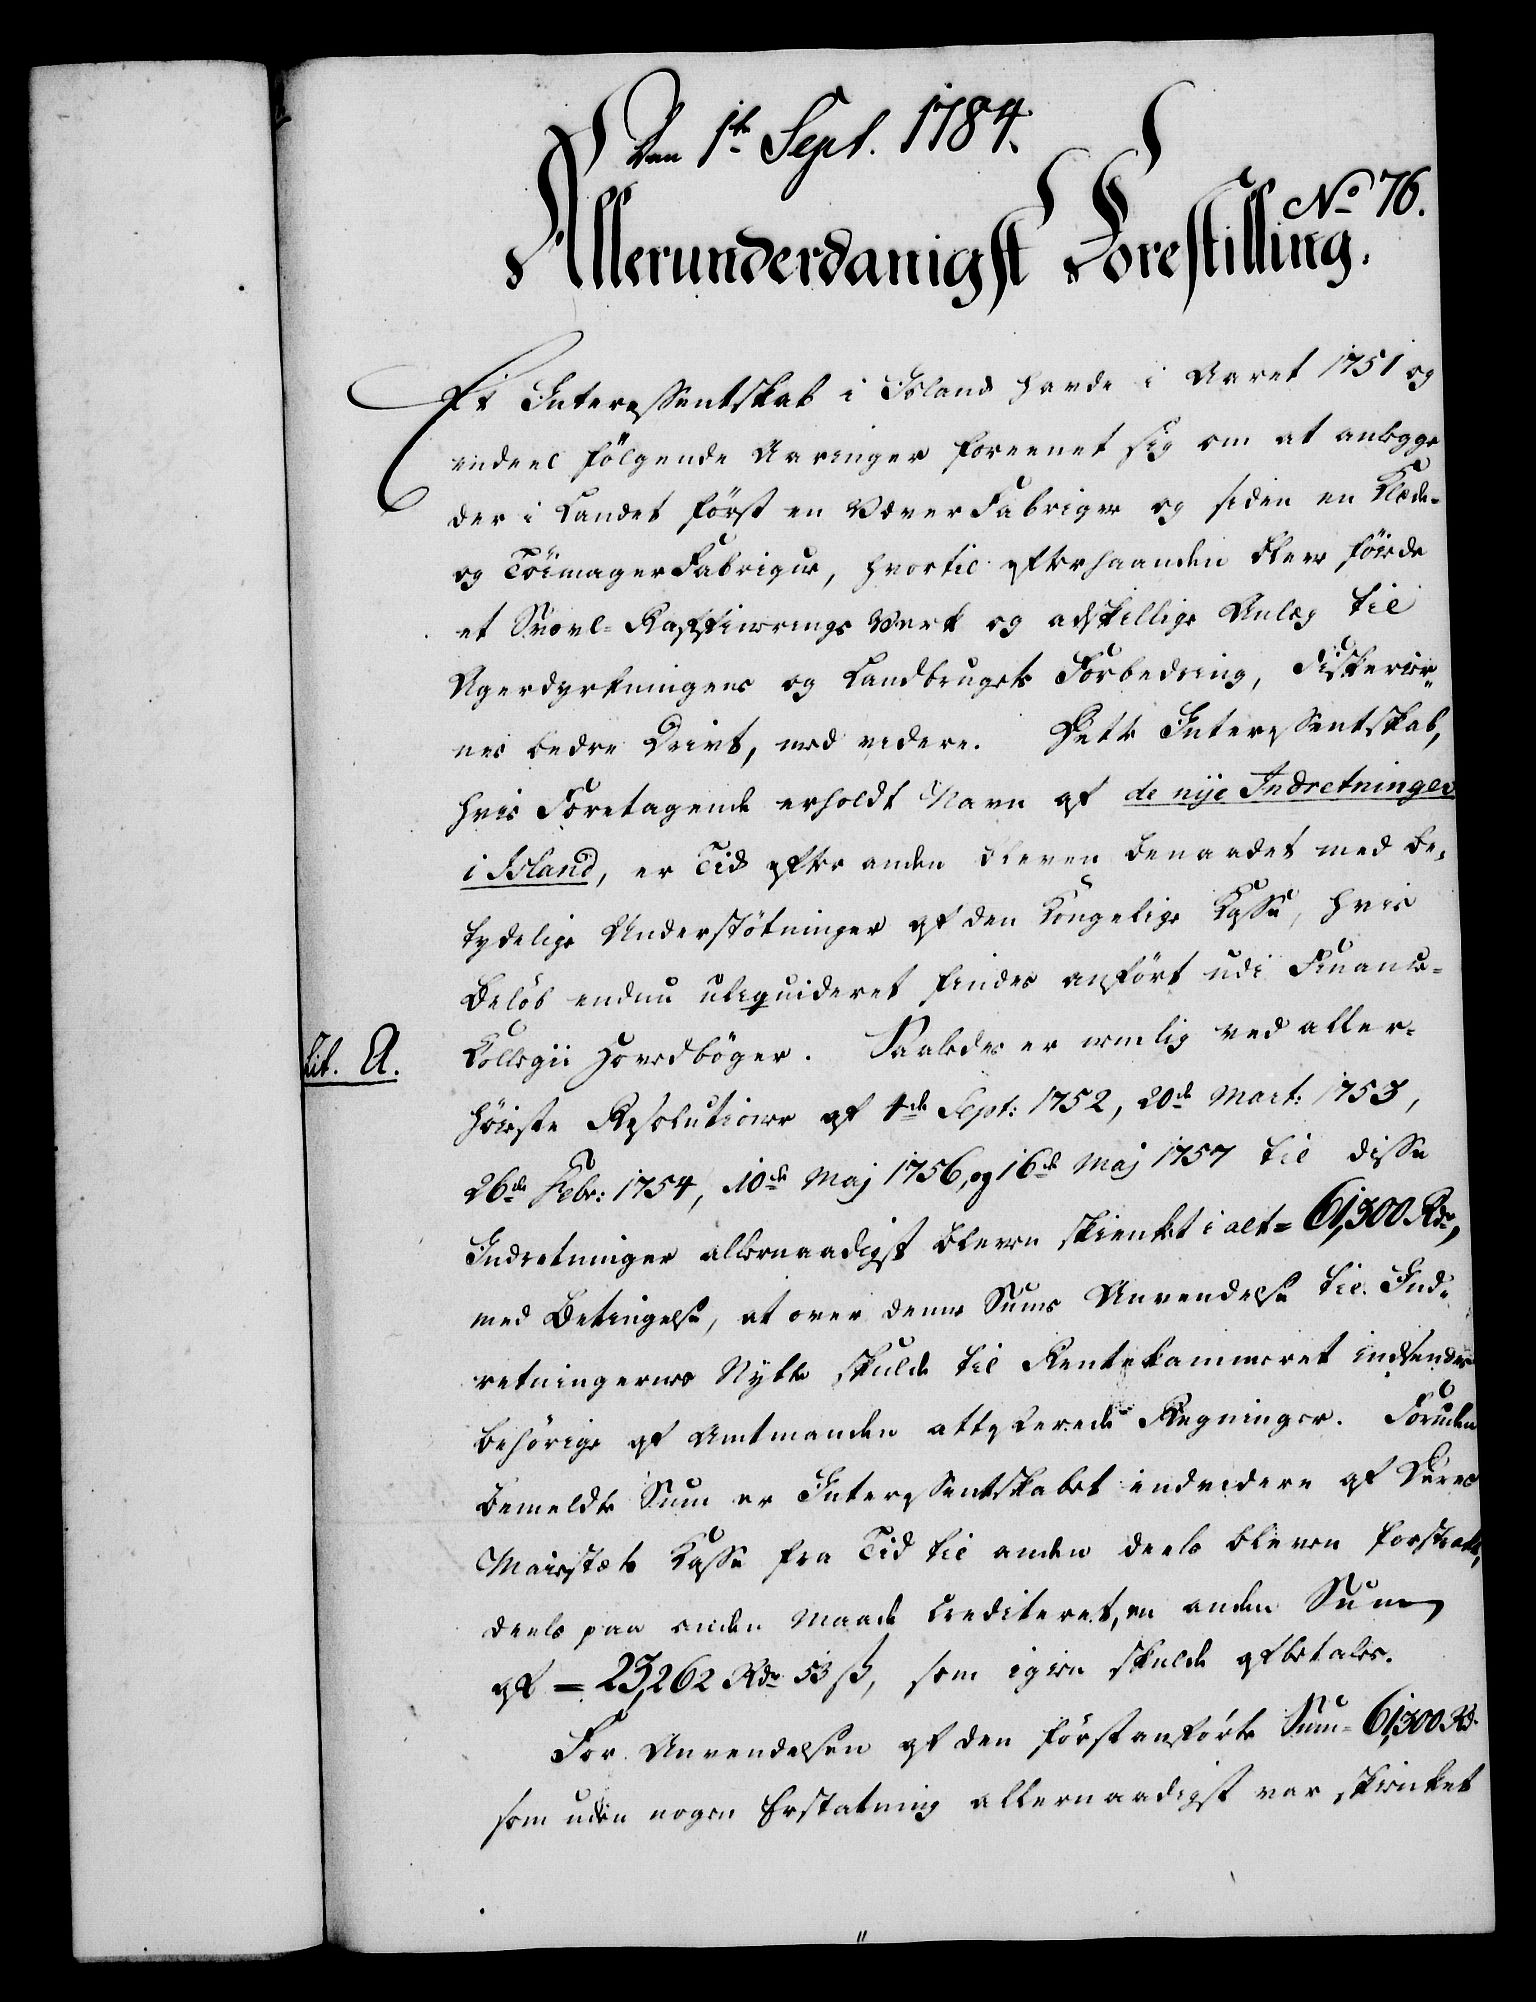 Den 1te Sept. 1784.
No 76.
Allerunderdanigst Forestilling.
Et Interessentskab i Island havde i Aaret 1751 og
endeel følgende Aaringer foreenet sig om at anlegge
der i Landet først en Væver Fabrique og siden en Klæde-
og Töimager Fabrique, hvortil efterhaanden blev föiede
et Svovl-Raffinerings Verk og adskillige Anlæg til
Agerdyrkningens og Landbrugets Forbedring, Fiskerier-
nes bedre Drivt, med videre. Dette Interessentskab,
hvis Foretagende erholdt Navn af de nije Indretninger
i Island, er Tid efter anden bleven benaadet med be-
tydelige Understötninger af den Kongelige Kasse, hvis
Belöb endnu uliqvideret findes anfört udi Finants-
Lit. A.
Collegii Hovedböger. Saaledes er nemlig ved aller-
höieste Resolutioner af 4de Sept: 1752, 20de Mart: 1753,
26de Febr: 1754, 10de Maj 1756, og 16de Maj 1757 til disse
Indretninger allernaadigst bleven skienket i alt = 61,300 Rdr,
med Betingelse, at over denne Sums Anvendelse til Ind-
retningernes Nytte skulde til Rentekammeret indsendes
behörige af Amtmanden attesterede Regninger. Foruden
bemeldte Sum er Interessentskabet endvidere af Deres
Maiestæts Kasse fra Tid til anden deels bleven forstrakt,
deels paa anden Maade crediteret, en anden Sum
af = 23,262 Rdr 53 ß, som igien skulde afbetales.
For Anvendelsen af den först anförte Sum = 61,300 Rd.
som uden nogen Erstatning allernaadigst var skienket